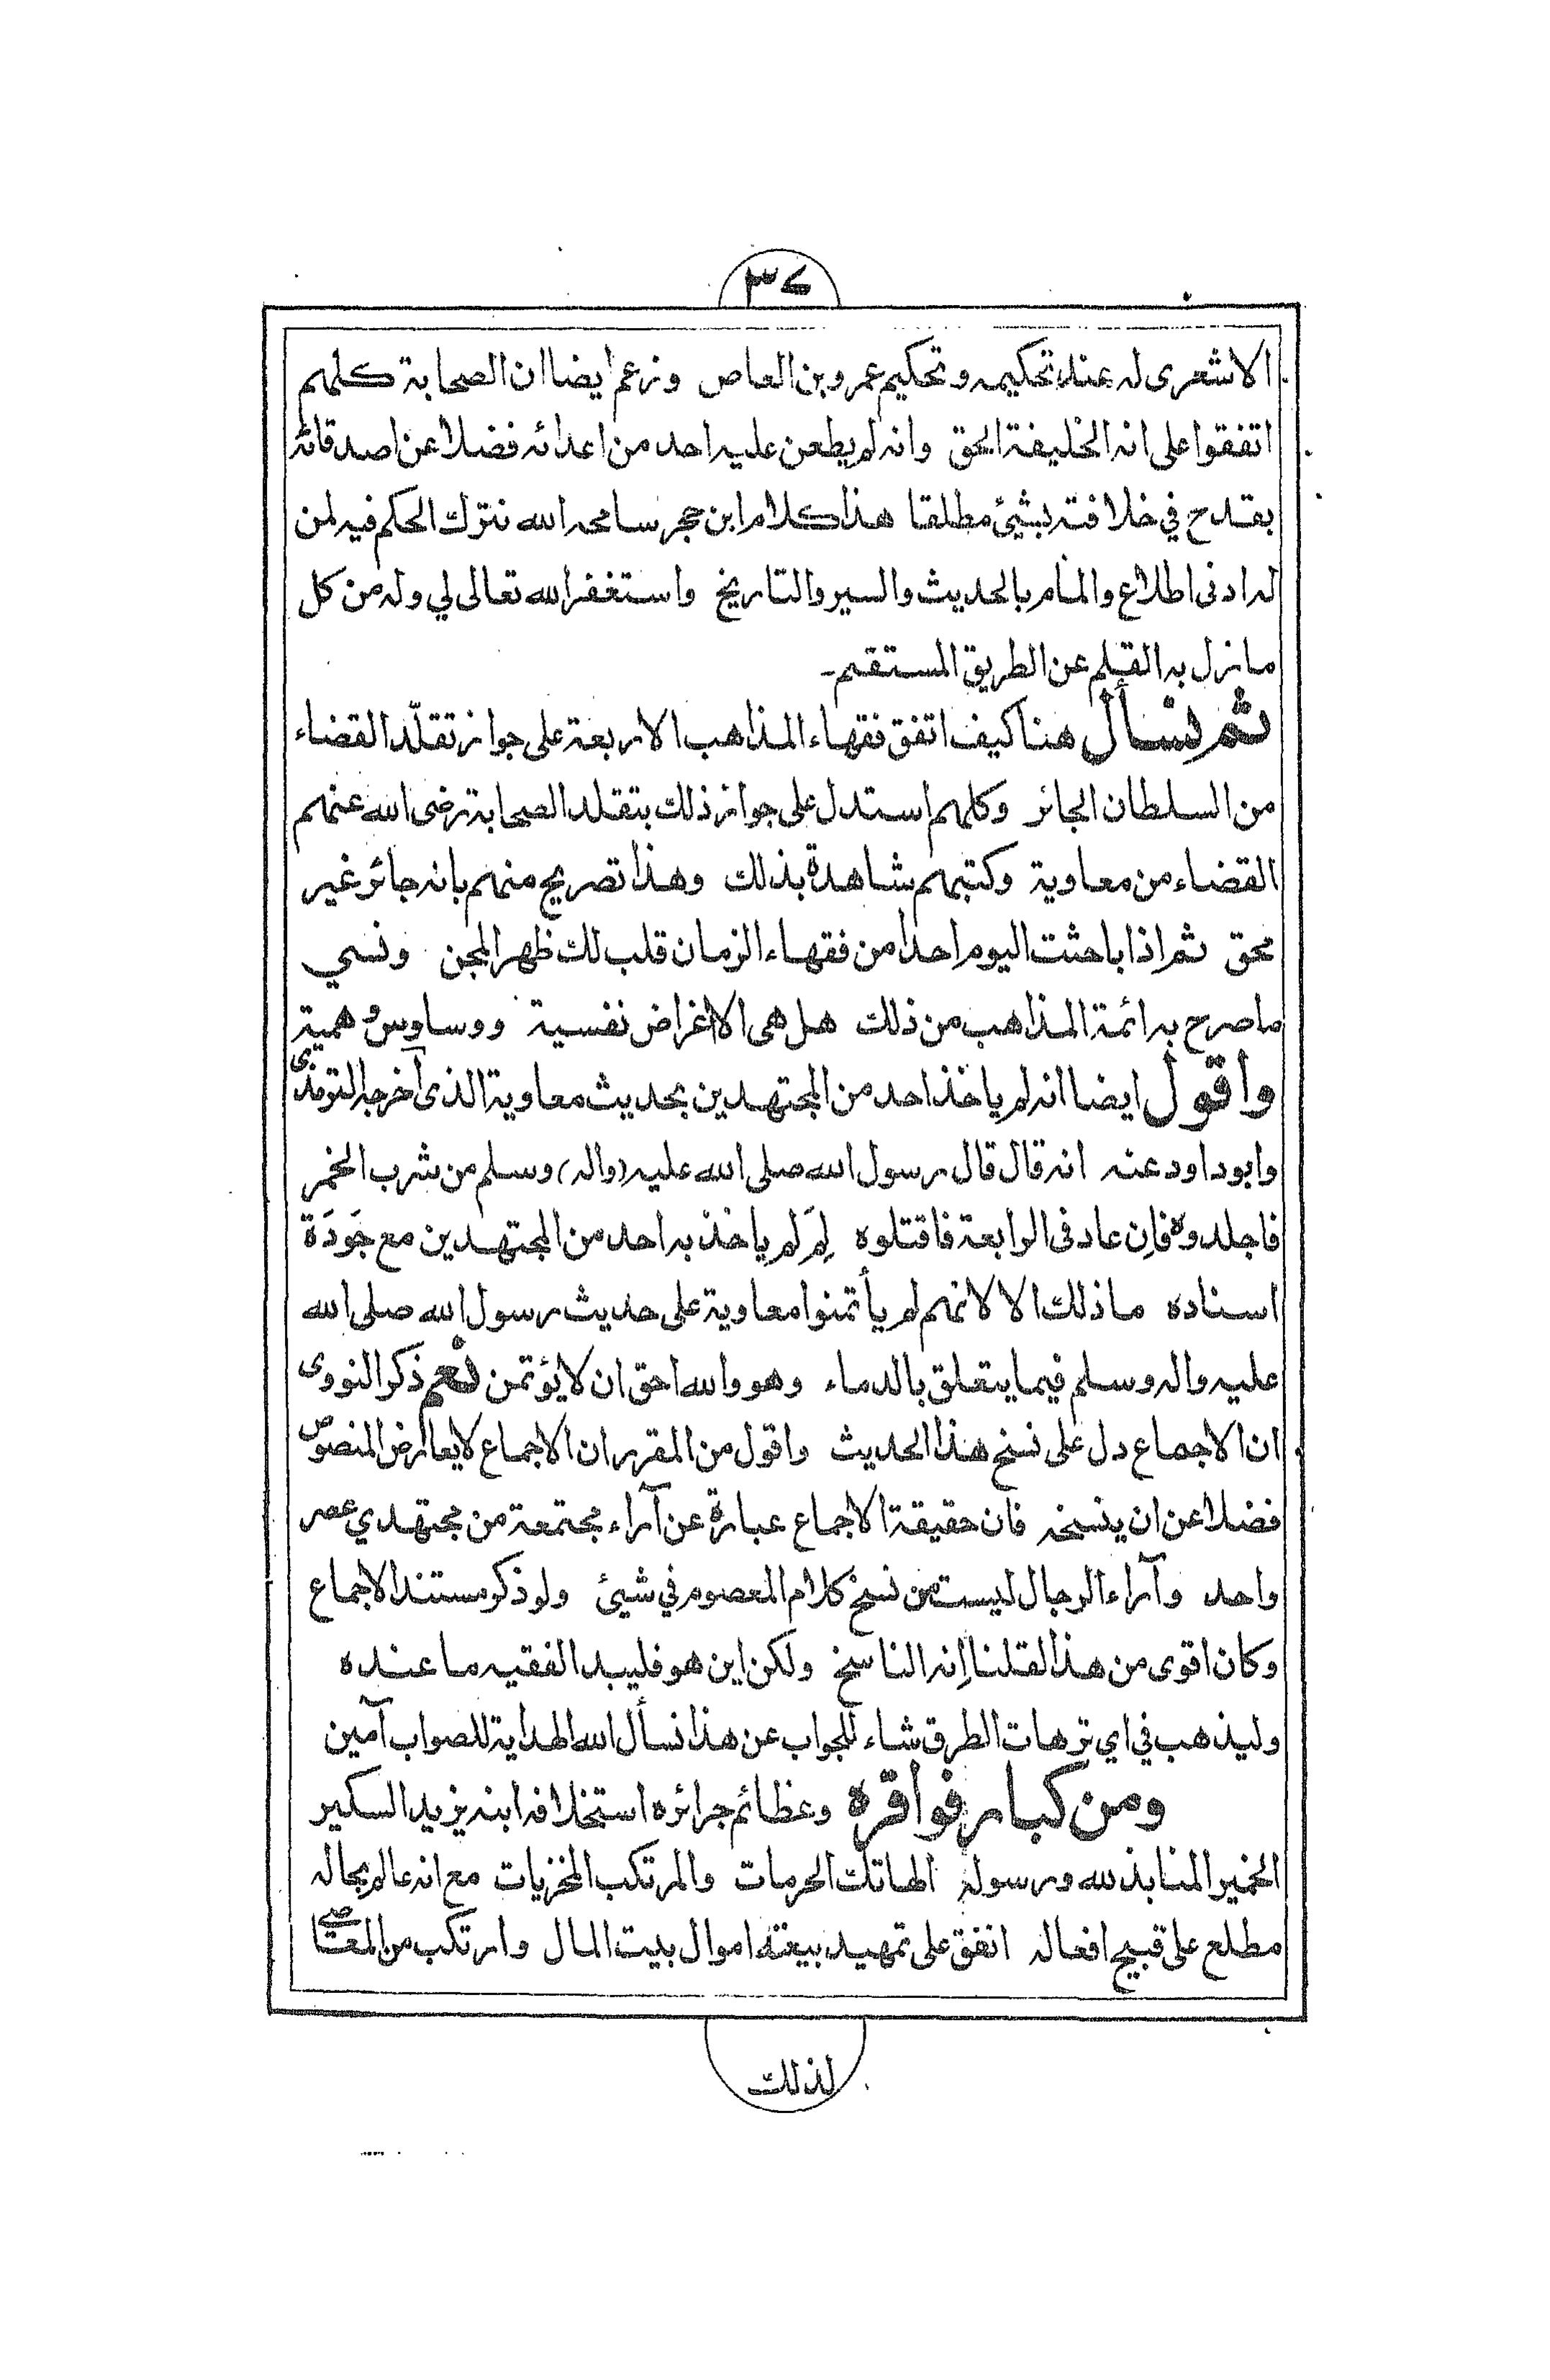 ٣٧
الاشعرى له عند تحكيمه وتحكيم عمرو بن العاص وزعم ايضا ان الصحابة كلهم
اتفقوا على انه الخليفة الحق وانه لم يطعن عليه احد من اعدائه فضلا عن اصدقائه
بقدح في خلافته بشيئ مطلقا هذا كلام ابن حجر سامحه الله نترك الحكم فيه لمن
له ادنى اطلاع والمام بالحديث والسير والتاريخ واستغفر الله تعالى لي وله من كل
ما نزل به القلم عن الطريق المستقيم-
ثم نسأل هنا كيف اتفق فقهاء المذاهب الاربعة على جواز تقلّد القضاء
من السلطان الجائر وكلهم استدل على جواز ذلك بتقلد الصحابة رضى الله عنهم
القضاء من معاوية وكتبهم شاهدة بذلك وهذا تصريح منهم بانه جائر غير
محق ثم اذا باحثت اليوم احدا من فقهاء الزمان قلب لك ظهر المجن ونسي
ما صرح به ائمة المذاهب من ذلك هل هى الا اغراض نفسية ووساوس وهمية
واقول ايضا انه لم ياخذ احد من المجتهدين بحديث معاوية الذى آخرجه الترمذى
وابو داود عنه انه قال قال رسول الله صلى الله عليه (واله) وسلم من شرب الخمر
فاجلدوه فاِن عاد فى الرابعة فاقتلوه لِمَ لم ياخذ به احد من المجتهدين مع جَودَة
اسناده ما ذلك الا لانهم لم يأتمنوا معاوية على حديث رسول الله صلى الله
عليه واله وسلم فيما يتعلق بالدماء وهو والله احق ان لا يؤتمن نعم ذكر النووى
ان الاجماع دل على نسخ هذا الحديث واقول من المقرر ان الاجماع لا يعارض المنصوص
فضلا عن ان ينسخه فان حقيقة الاجماع عبارة عن آراء مجتمعة من مجتهدي عصر
واحد وآراء الرجال ليست من نسخ كلام المعصوم في شيئ ولو ذكر مستند الاجماع
وكان اقوى من هذا لقلنا اِنه الناسخ ولكن اين هو فليبد الفقيه ما عنده
وليذهب في اي ترهات الطرق شاء للجواب عن هذا نسأل الله الهداية للصواب آمين
ومن كبار فواقره وعظائم جرائره استخلافه ابنه يزيد السكير
الخمير المنابذ لله ورسوله الهاتك الحرمات والمرتكب المخزيات مع انه عالم بحاله
مطلع على قبيح افعاله انفق على تمهيد بيعته اموال بيت المال وارتكب من المعاصي
لذلك